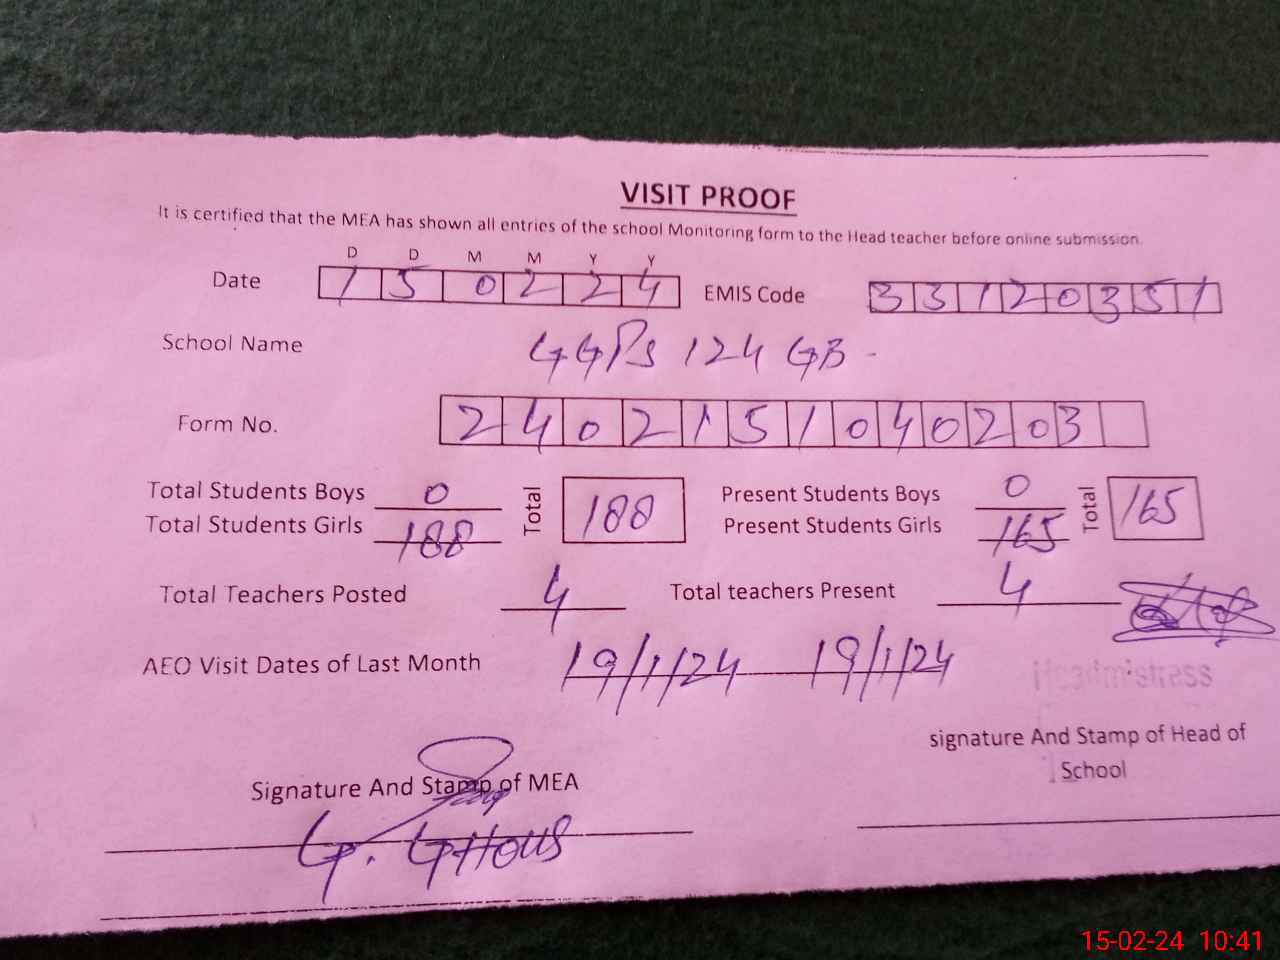 VISIT PROOF
It is certified that the MEA has shown all entries of the school Monitoring form to the Head teacher before online submission.
D D M M Y Y
Date 1 5 0 2 2 4 EMIS Code 3 3 1 2 0 3 5 1
School Name GGPS 124 GB -
Form No. 2 4 0 2 1 5 1 0 4 0 2 0 3
Total Students Boys 0 Total 188 Present Students Boys 0 Total 165
Total Students Girls 188 Present Students Girls 165
Total Teachers Posted 4 Total teachers Present 4
AEO Visit Dates of Last Month 19/1/24 19/1/24
Headmistress
signature And Stamp of Head of
School
Signature And Stamp of MEA
G. GHOUS
15-02-24 10:41